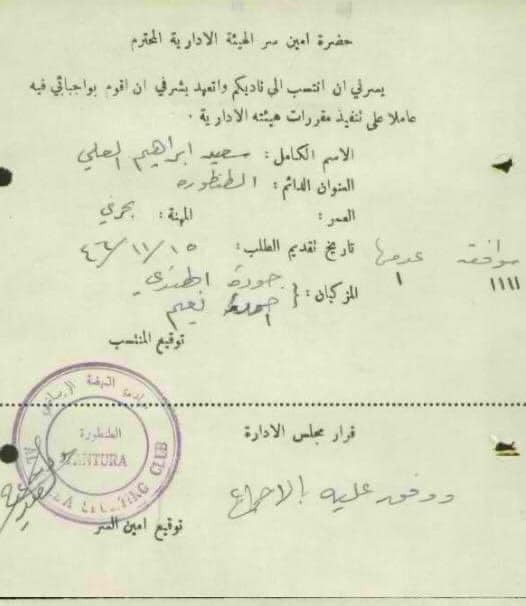 حضرة امين سر الهيئة الادارية المحترم
يسرني ان انتسب الى ناديكم واتعهد بشرفي ان اقوم بواجباتي فيه
عاملا على تنفيذ مقررات هيئته الادارية .
الاسم الكامل : سعيد ابراهيم العلي
العنوان الدائم : الطنطوره
العمر : المهنة : بحري
تاريخ تقديم الطلب : ١٥/١١/٤٦
موافقه عدمها
١١١١ ١
المزكيان : { جودة الهندي
احمد نعيم
توقيع المنتسب
نادي النهضة الرياضي
الطنطورة
TANTURA
AL SPORTING CLUB
قرار مجلس الادارة
ووفق عليه بالاجماع
توقيع امين السر